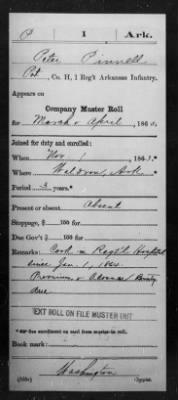 P 1 Ark.
Peter Pinnell
Pvt., Co. H, 1 Reg't Arkansas Infantry.
Appears on
Company Master Roll
for March & April, 186
Joined for duty and enrolled:
When Nov 1, 186
Where Waldron, Ark.
Period 3 years.*
Present or absent, Absent
Stoppage, $ 100 for
Due Gov't $ 100 for
Remarks: Cook in Reg'tl Hospital
since Jan. 1,
Premium & Advance Bounty
due
TEXT ROLL ON FILE MUSTER OUT
Book mark:
Washington
Copyist.